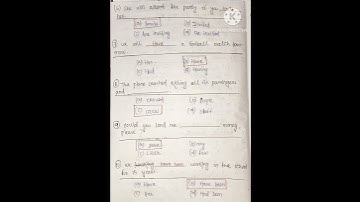 (e) She will attend the party if you
her
(a) Invite (b) Invited
(c) Are inviting (d) Are invited
(f) We will have a football match
(a) Has (b) Have
(c) Had (d) Having
The plane crashed killing all its passengers
and
(c) crew (d) Staff
(g) Would you lend me money,
please
(a) some (b) any
(c) Little (d) Few
(h) working in the school
for 15 years
(a) Have (b) Have been
(c) Has (d) Had been